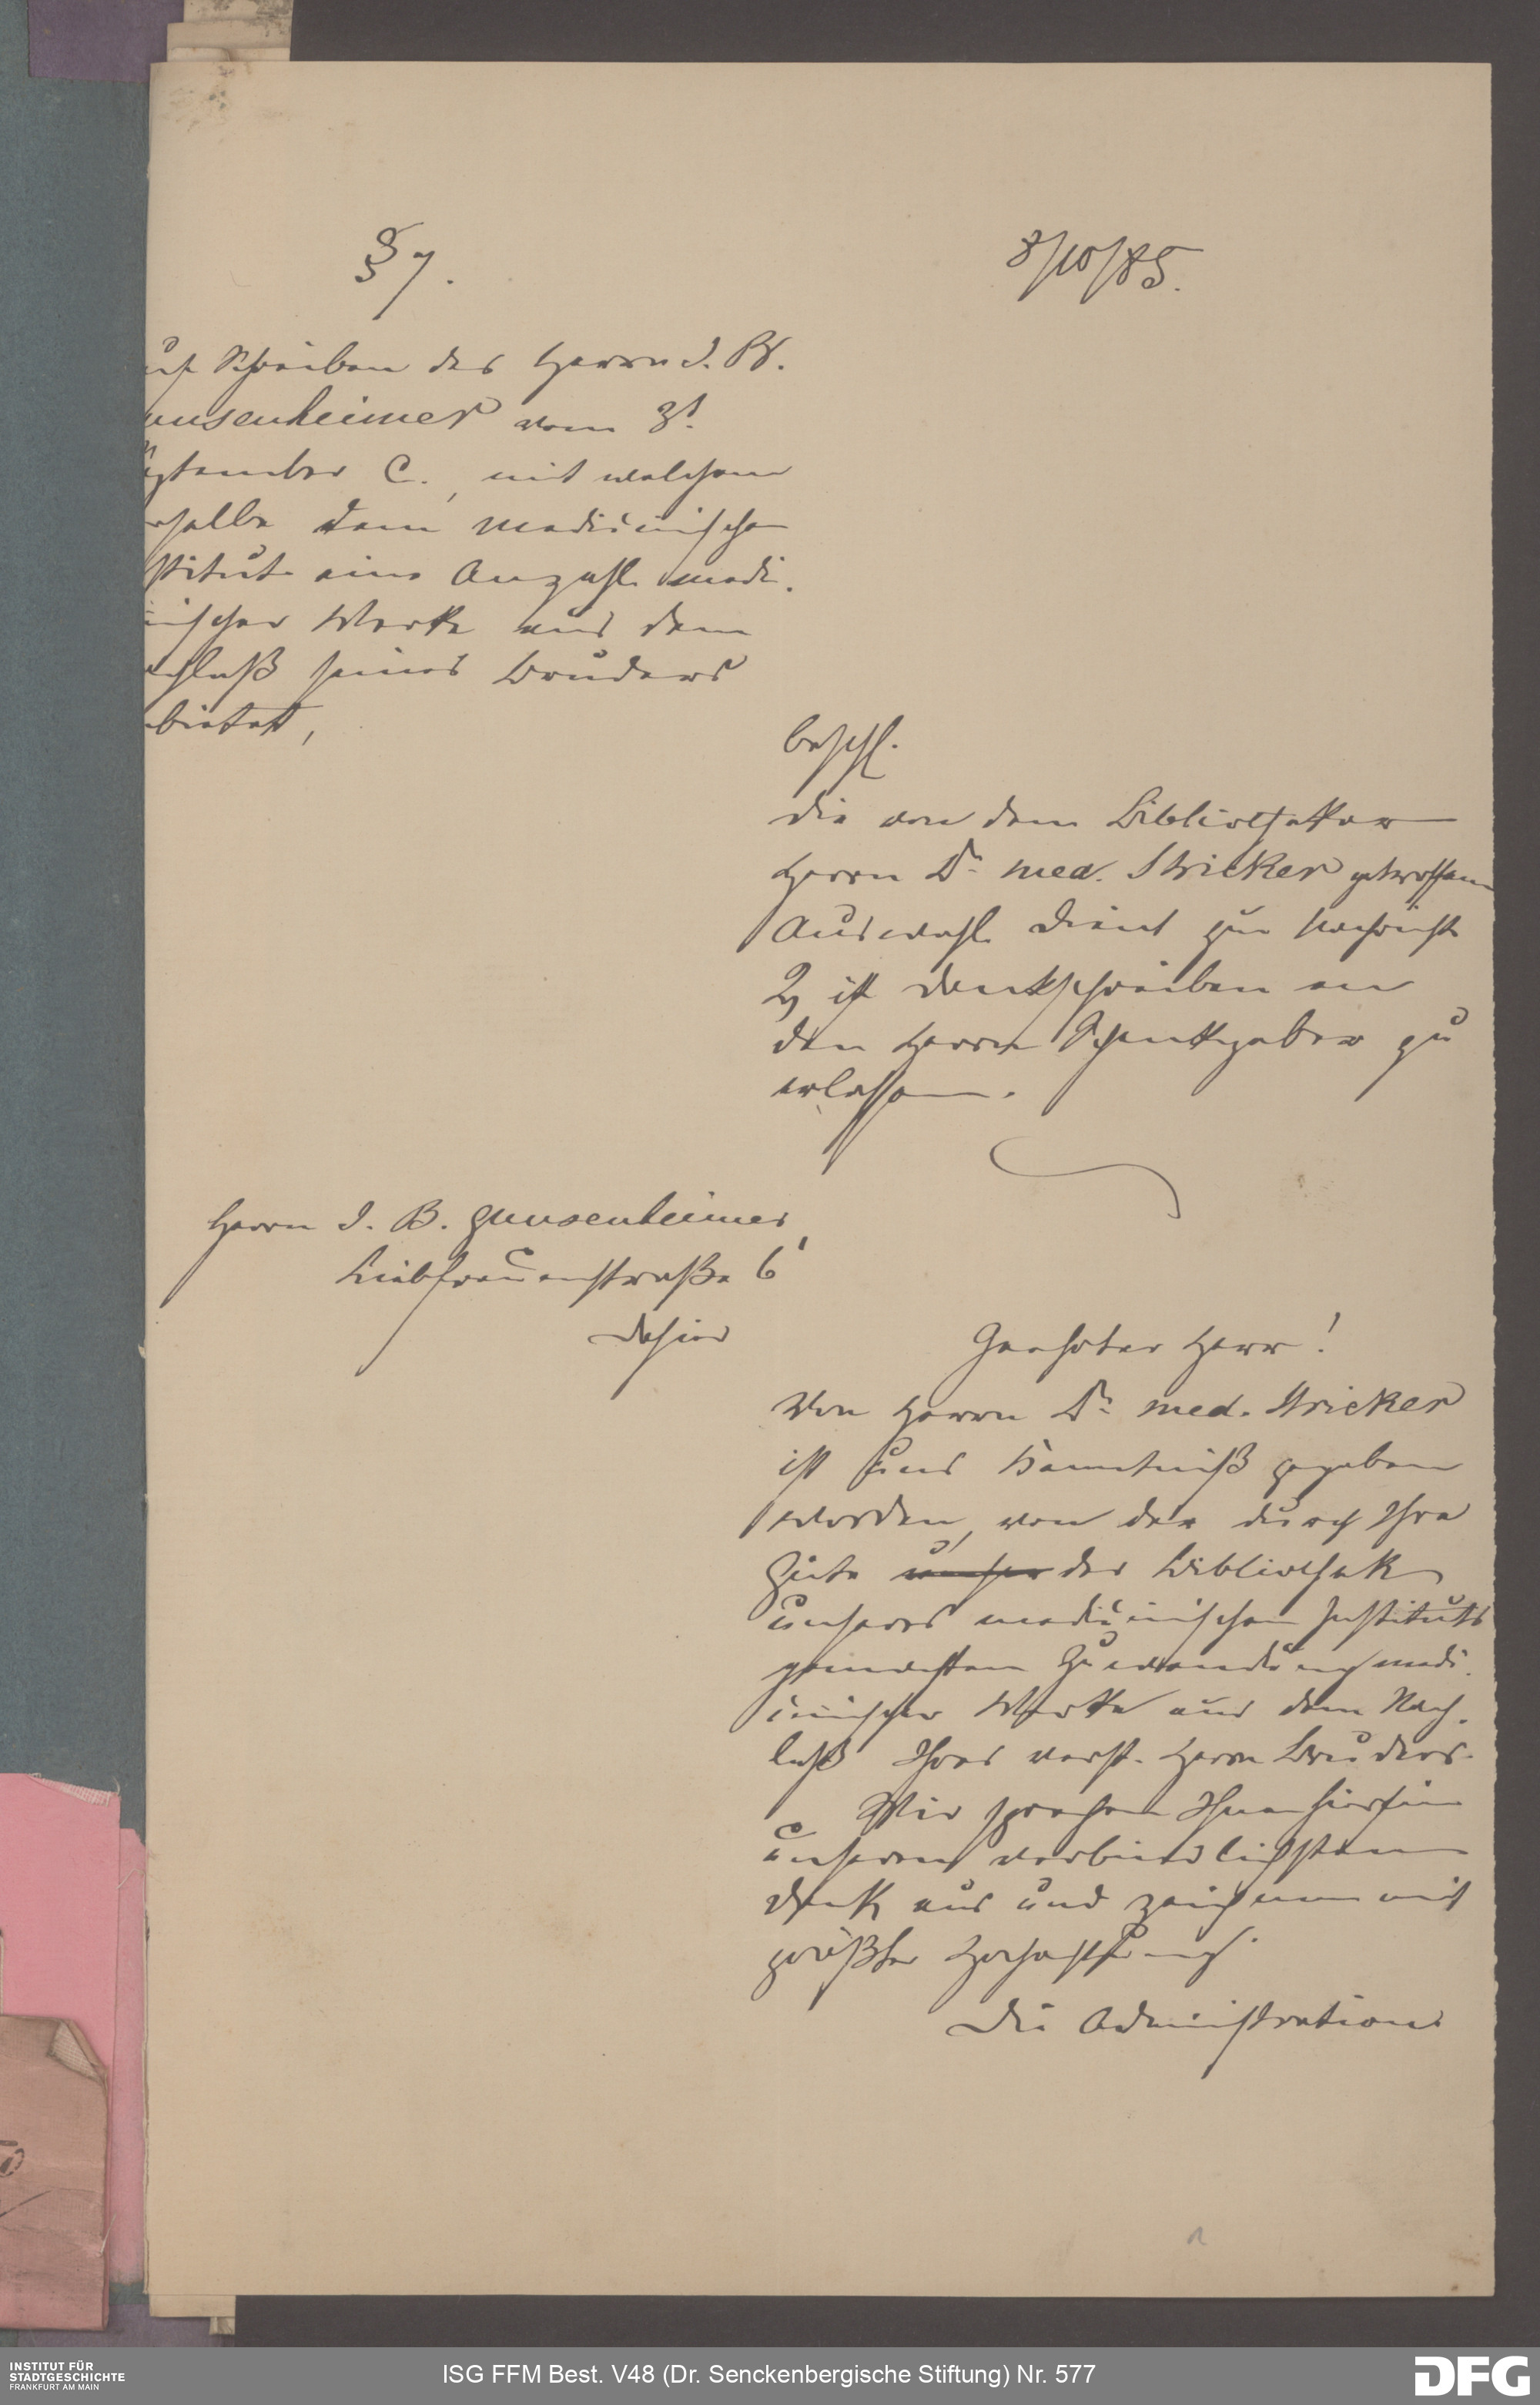 § 7.
8/10/85.
uf Schreiben des Herrn J. B.
unsenheimer vom 3t.
eptember c., mit welchem
rselbe dem medicinischen
stitut eine Anzahl medi-
inischer Werke aus dem
chlaß seines Bruders
bietet,
beschl.
die von dem Bibliothekar
Herrn Dr. med. Stricker getroffene
Auswahl dient zur Nachricht
& ist Dankschreiben an
den Herrn Schenkgeber zu
erlassen.
Herrn J. B. Gunsenheimer,
Liebfrauenstraße 6
dahier
Geehrter Herr!
Von Herrn Dr. med. Stricker
ist uns Kenntniß gegeben
worden, von der durch Ihre
Güte unser der Bibliothek
unseres medicinischen Instituts
gemachten Zuwendung medi-
cinischer Werke aus dem Nach-
laß Ihres verst. Herrn Bruders.
Wir sprechen Ihnen hierfür
unseren verbindlichsten
Dank aus und zeichnen mit
größter Hochachtung.
Die Administration
INSTITUT FÜR
STADTGESCHICHTE
FRANKFURT AM MAIN
ISG FFM Best. V48 (Dr. Senckenbergische Stiftung) Nr. 577
DFG